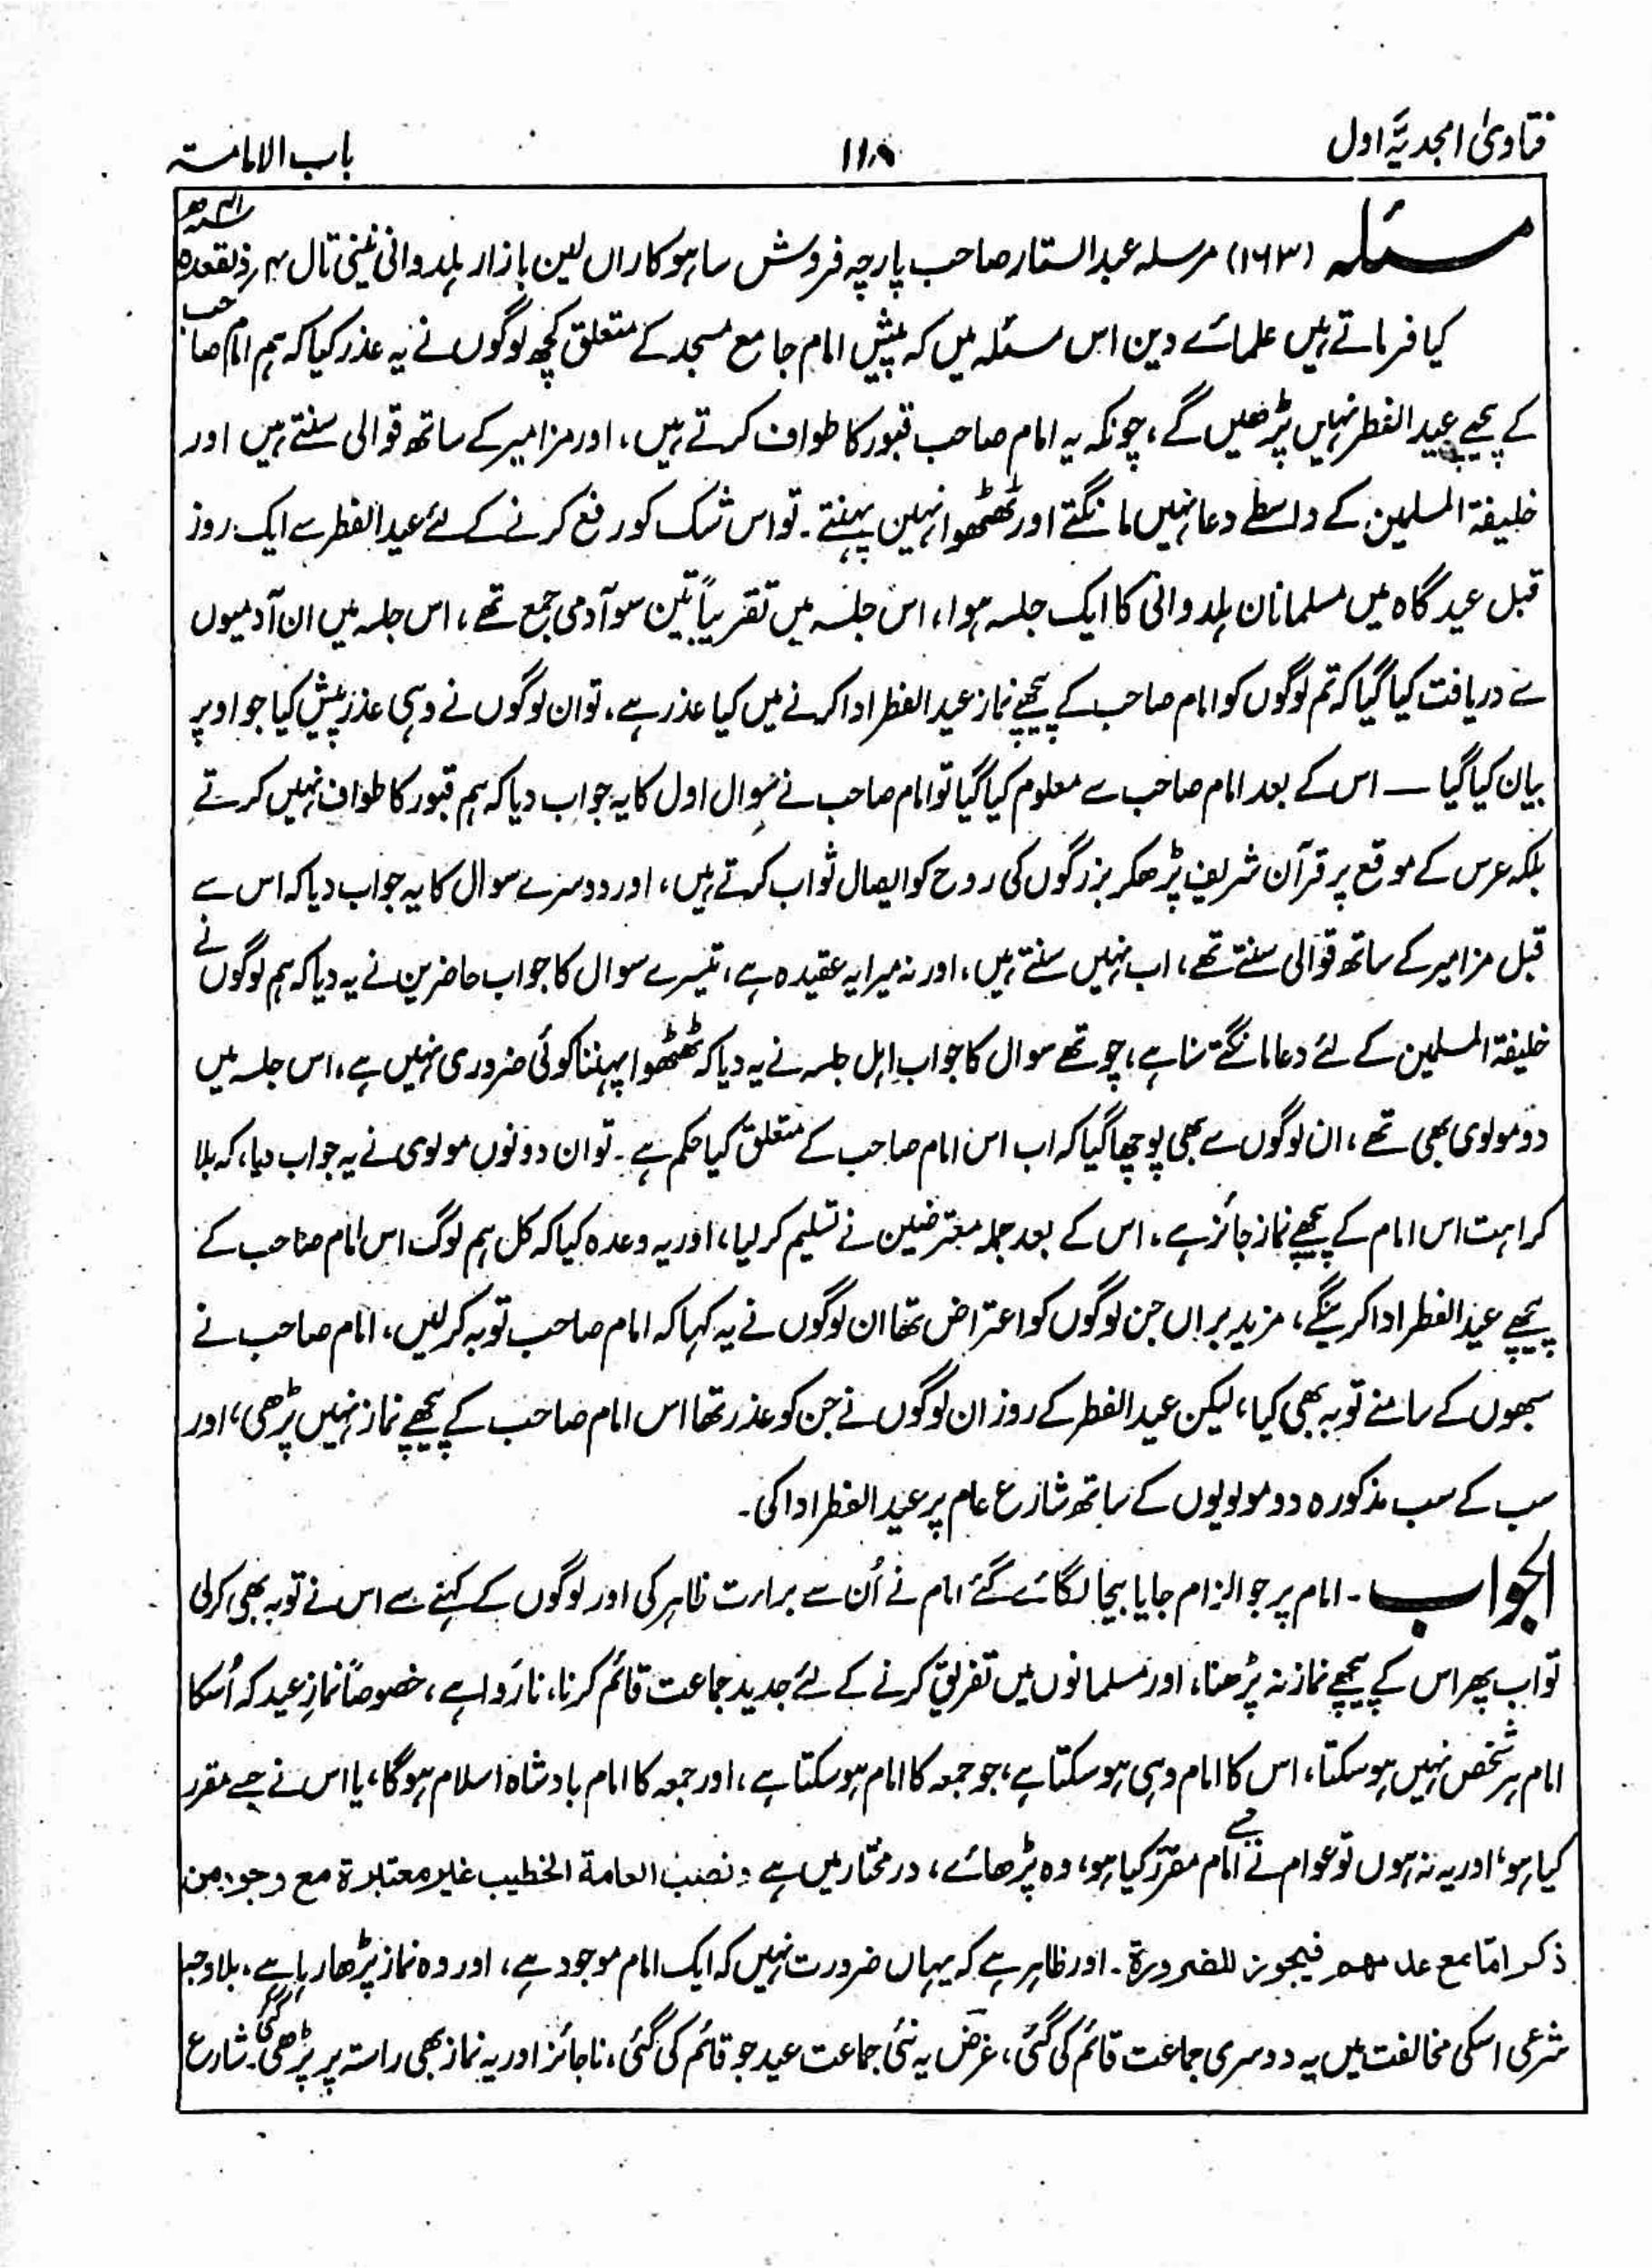 فتاویٰ امجدیہ اول
۱۱۸
باب الامامۃ
مسئلہ (۱۶۳) مرسلہ عبدالستار صاحب پارچہ فروش ساہوکاراں لین بازار ہلدوانی نینی تال ۴ ذیقعدہ
کیا فرماتے ہیں علمائے دین اس مسئلہ میں کہ پیش امام جامع مسجد کے متعلق کچھ لوگوں نے یہ عذر کیا کہ ہم امام صاحب
کے پیچھے عید الفطر نہیں پڑھیں گے، چونکہ یہ امام صاحب قبور کا طواف کرتے ہیں، اور مزامیر کے ساتھ قوالی سنتے ہیں اور
خلیفۃ المسلمین کے واسطے دعا نہیں مانگتے اور ٹھٹھوا نہیں پہنتے۔ تو اس شک کو رفع کرنے کے لئے عید الفطر سے ایک روز
قبل عید گاہ میں مسلمانان ہلدوانی کا ایک جلسہ ہوا، اس جلسہ میں تقریباً تین سو آدمی جمع تھے، اس جلسہ میں ان آدمیوں
سے دریافت کیا گیا کہ تم لوگوں کو امام صاحب کے پیچھے نماز عید الفطر ادا کرنے میں کیا عذر ہے، تو ان لوگوں نے وہی عذر پیش کیا جو اوپر
بیان کیا گیا — اس کے بعد امام صاحب سے معلوم کیا گیا تو امام صاحب نے سوال اول کا یہ جواب دیا کہ ہم قبور کا طواف نہیں کرتے
بلکہ عرس کے موقع پر قرآن شریف پڑھکر بزرگوں کی روح کو ایصال ثواب کرتے ہیں، اور دوسرے سوال کا یہ جواب دیا کہ اس سے
قبل مزامیر کے ساتھ قوالی سنتے تھے، اب نہیں سنتے ہیں، اور نہ میرا یہ عقیدہ ہے، تیسرے سوال کا جواب حاضرین نے یہ دیا کہ ہم لوگوں نے
خلیفۃ المسلمین کے لئے دعا مانگتے سنا ہے، چوتھے سوال کا جواب اہل جلسہ نے یہ دیا کہ ٹھٹھوا پہننا کوئی ضروری نہیں ہے، اس جلسہ میں
دو مولوی بھی تھے، ان لوگوں سے بھی پوچھا گیا کہ اب اس امام صاحب کے متعلق کیا حکم ہے۔ تو ان دونوں مولوی نے یہ جواب دیا، کہ بلا
کراہت اس امام کے پیچھے نماز جائز ہے۔ اس کے بعد جملہ معترضین نے تسلیم کر لیا، اور یہ وعدہ کیا کہ کل ہم لوگ اس امام صاحب کے
پیچھے عید الفطر ادا کرینگے، مزید براں جن لوگوں کو اعتراض تھا ان لوگوں نے یہ کہا کہ امام صاحب توبہ کرلیں، امام صاحب نے
سبھوں کے سامنے توبہ بھی کیا، لیکن عید الفطر کے روز ان لوگوں نے جن کو عذر تھا اس امام صاحب کے پیچھے نماز نہیں پڑھی، اور
سب کے سب مذکورہ دو مولویوں کے ساتھ شارع عام پر عید الفطر ادا کی۔
الجواب ۔ امام پر جو الزام جا یا بیجا لگائے گئے امام نے اُن سے برارت ظاہر کی اور لوگوں کے کہنے سے اس نے توبہ بھی کرلی
تو اب پھر اس کے پیچھے نماز نہ پڑھنا، اور مسلمانوں میں تفریق کرنے کے لئے جدید جماعت قائم کرنا، ناروا ہے، خصوصاً نمازِ عید کہ اُسکا
امام ہر شخص نہیں ہو سکتا، اس کا امام وہی ہو سکتا ہے، جو جمعہ کا امام ہو سکتا ہے، اور جمعہ کا امام بادشاہ اسلام ہوگا، یا اس نے جسے مقرر
کیا ہو، اور یہ نہ ہوں تو عوام نے جسے امام مقرر کیا ہو، وہ پڑھائے، درمختار میں ہے ونصب العامۃ الخطیب غیر معتبرۃ مع وجود من
ذکر اما مع عدمھم فیجوز للضرورۃ۔ اور ظاہر ہے کہ یہاں ضرورت نہیں کہ ایک امام موجود ہے، اور وہ نماز پڑھا رہا ہے، بلا وجہ
شرعی اسکی مخالفت میں یہ دوسری جماعت قائم کی گئی، غرض یہ نئی جماعت عید جو قائم کی گئی، ناجائز اور یہ نماز بھی راستہ پر پڑھی گئی۔ شارع